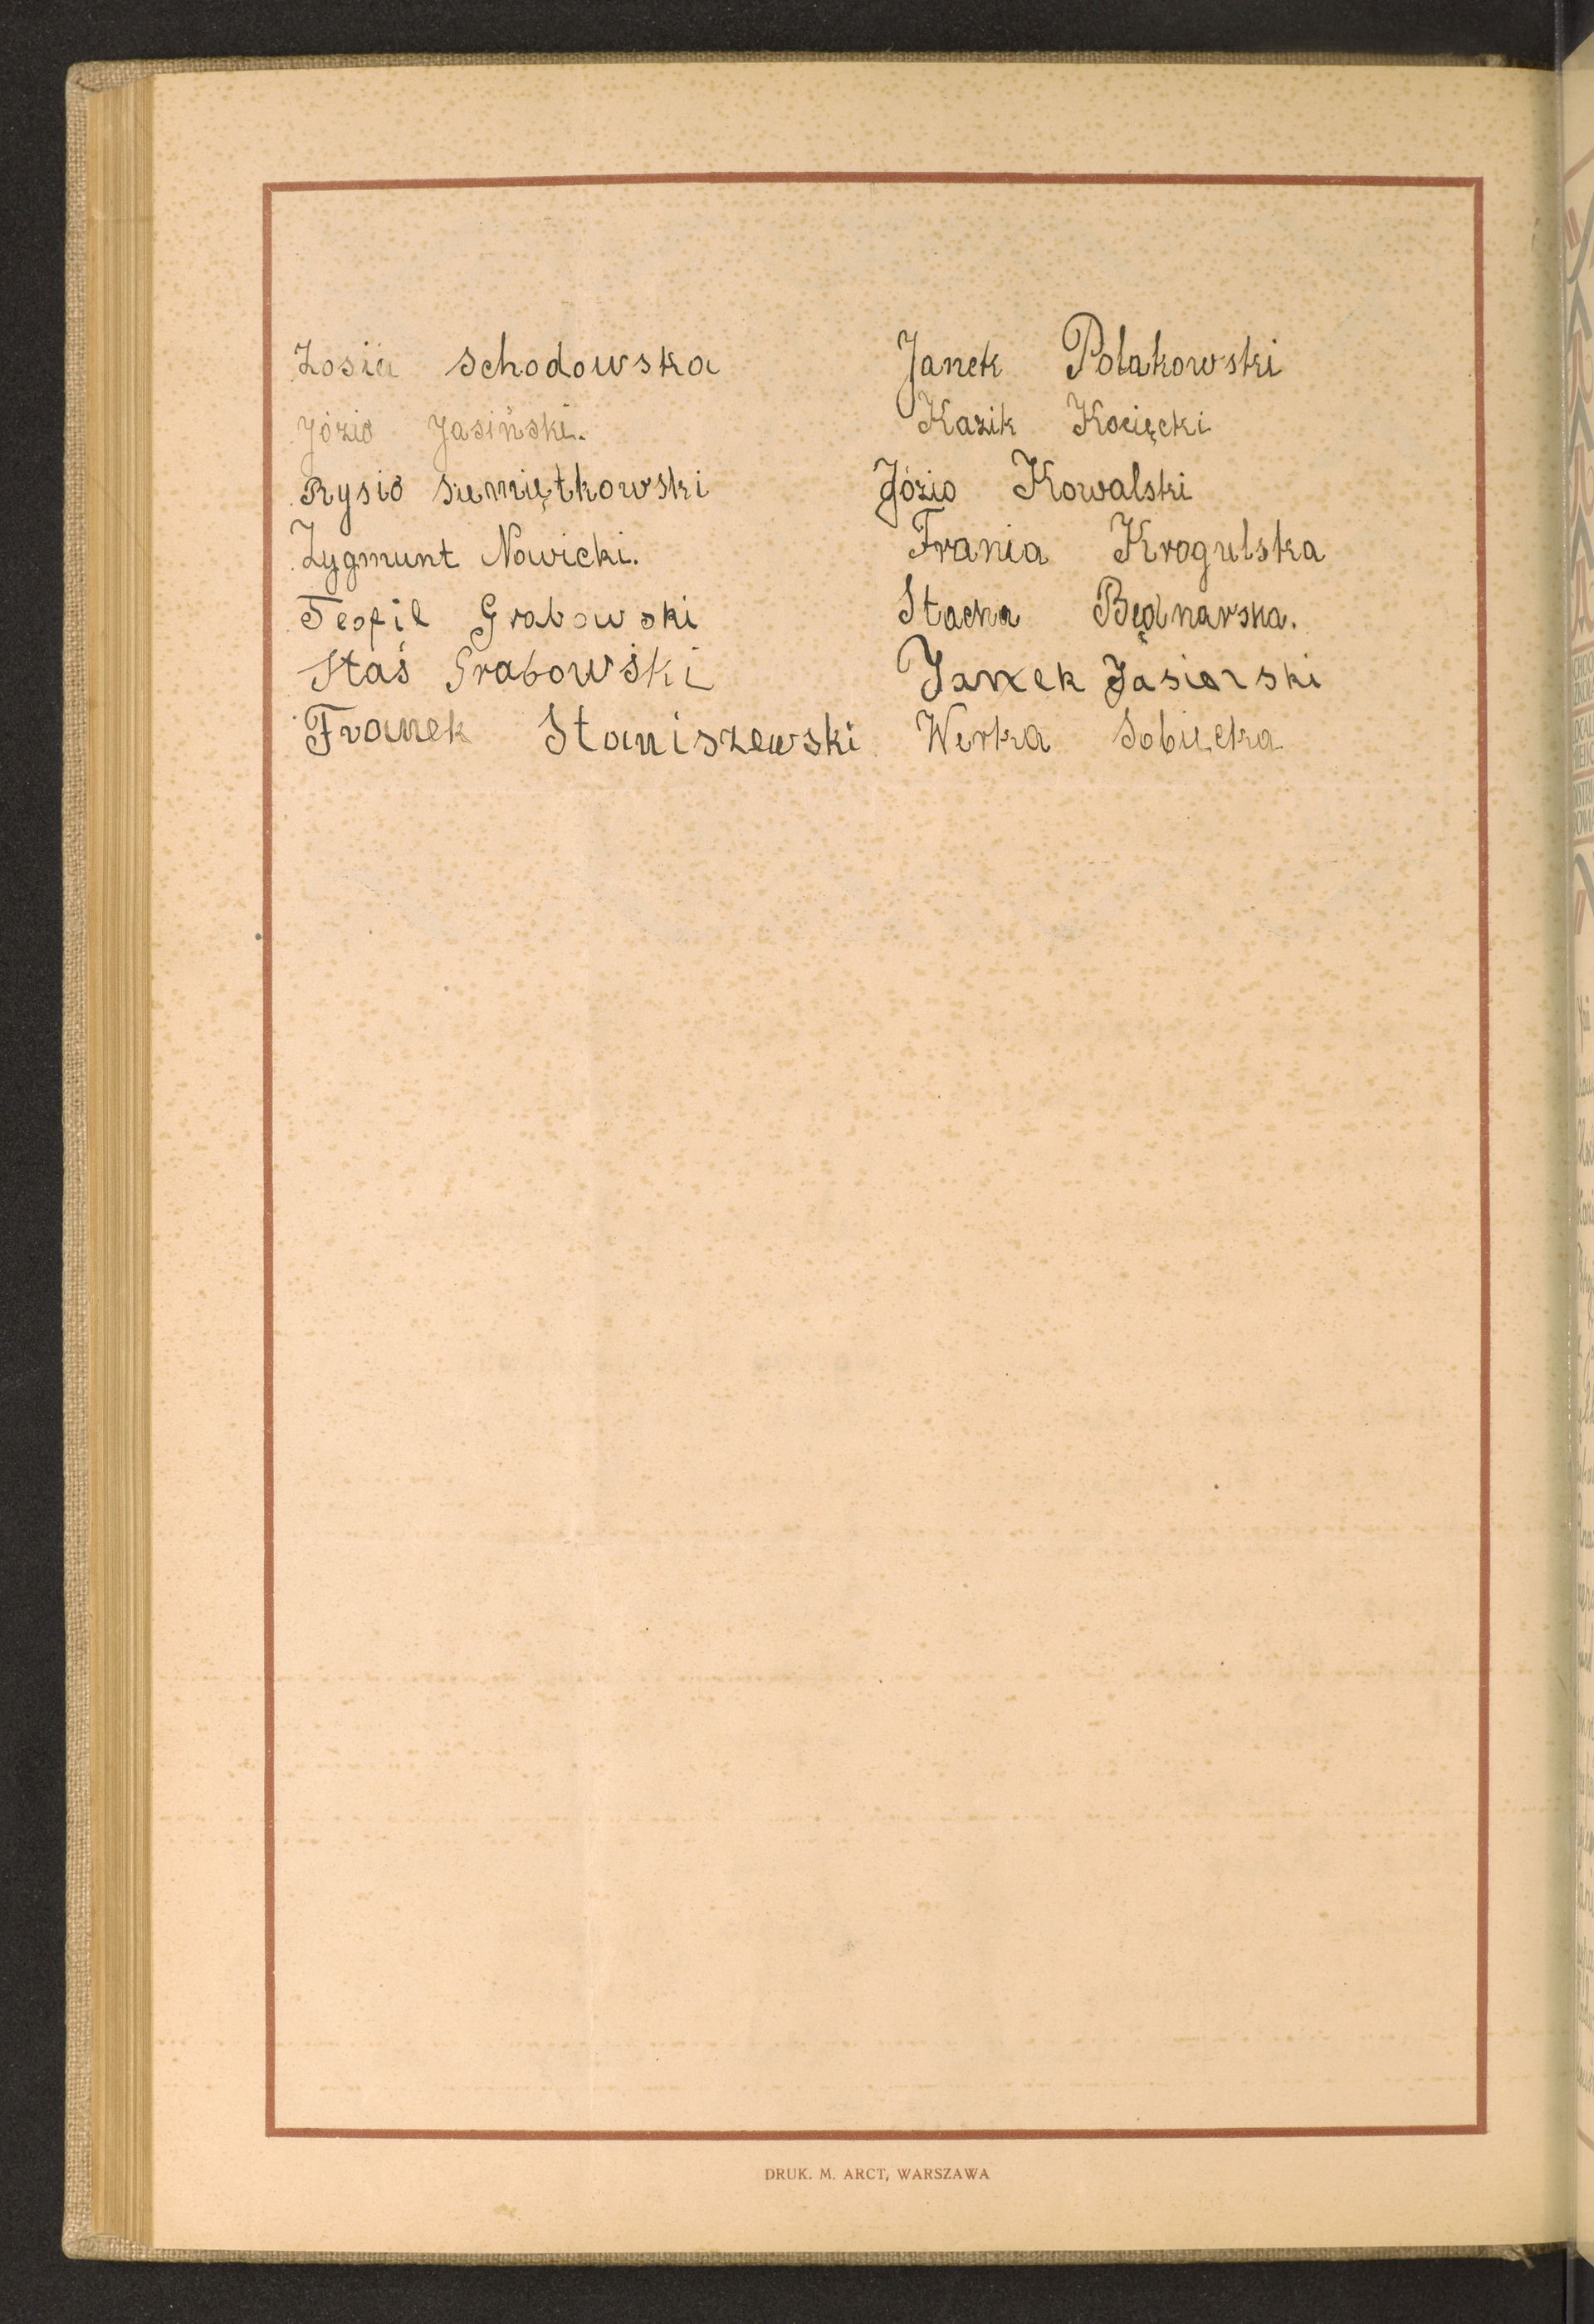 Zosia Schodowska
Józio Jasiński.
Rysio Siemiętkowski
Zygmunt Nowicki.
Teofil Grabowski
Staś Grabowski
Franek Staniszewski
Janek Polakowski
Kazik Kocięcki
Józio Kowalski
Frania Krogulska
Stacha Będnarska.
Janek Jasierski
Werka Sobiecka
DRUK. M. ARCT, WARSZAWA